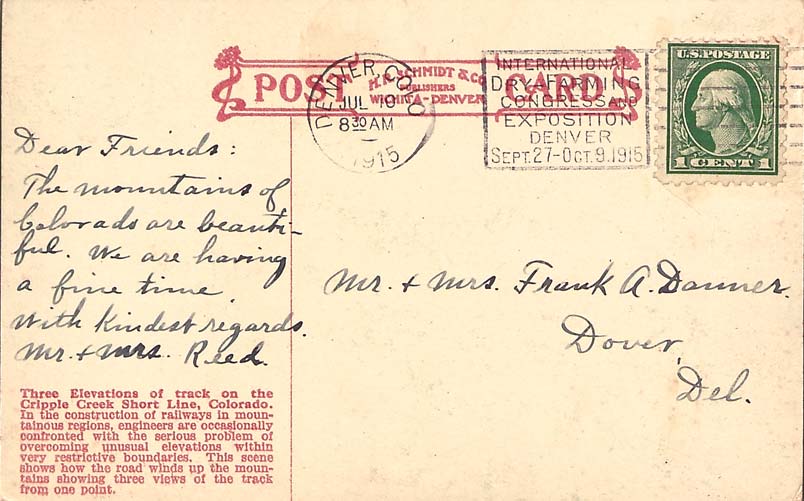 POST CARD
H.H. SCHMIDT & CO.
PUBLISHERS
WICHITA-DENVER
DENVER, COLO
JUL 10
8 30 AM
1915
INTERNATIONAL
DRY-FARMING
CONGRESS AND
EXPOSITION
DENVER
SEPT. 27-OCT. 9. 1915
U.S. POSTAGE
1 CENT 1
Dear Friends:
The mountains of
Colorado are beauti-
ful. We are having
a fine time.
With kindest regards.
Mr. + Mrs. Reed.
Mr. + Mrs. Frank A. Danner.
Dover,
Del.
Three Elevations of track on the
Cripple Creek Short Line, Colorado.
In the construction of railways in moun-
tainous regions, engineers are occasionally
confronted with the serious problem of
overcoming unusual elevations within
very restrictive boundaries. This scene
shows how the road winds up the moun-
tains showing three views of the track
from one point.